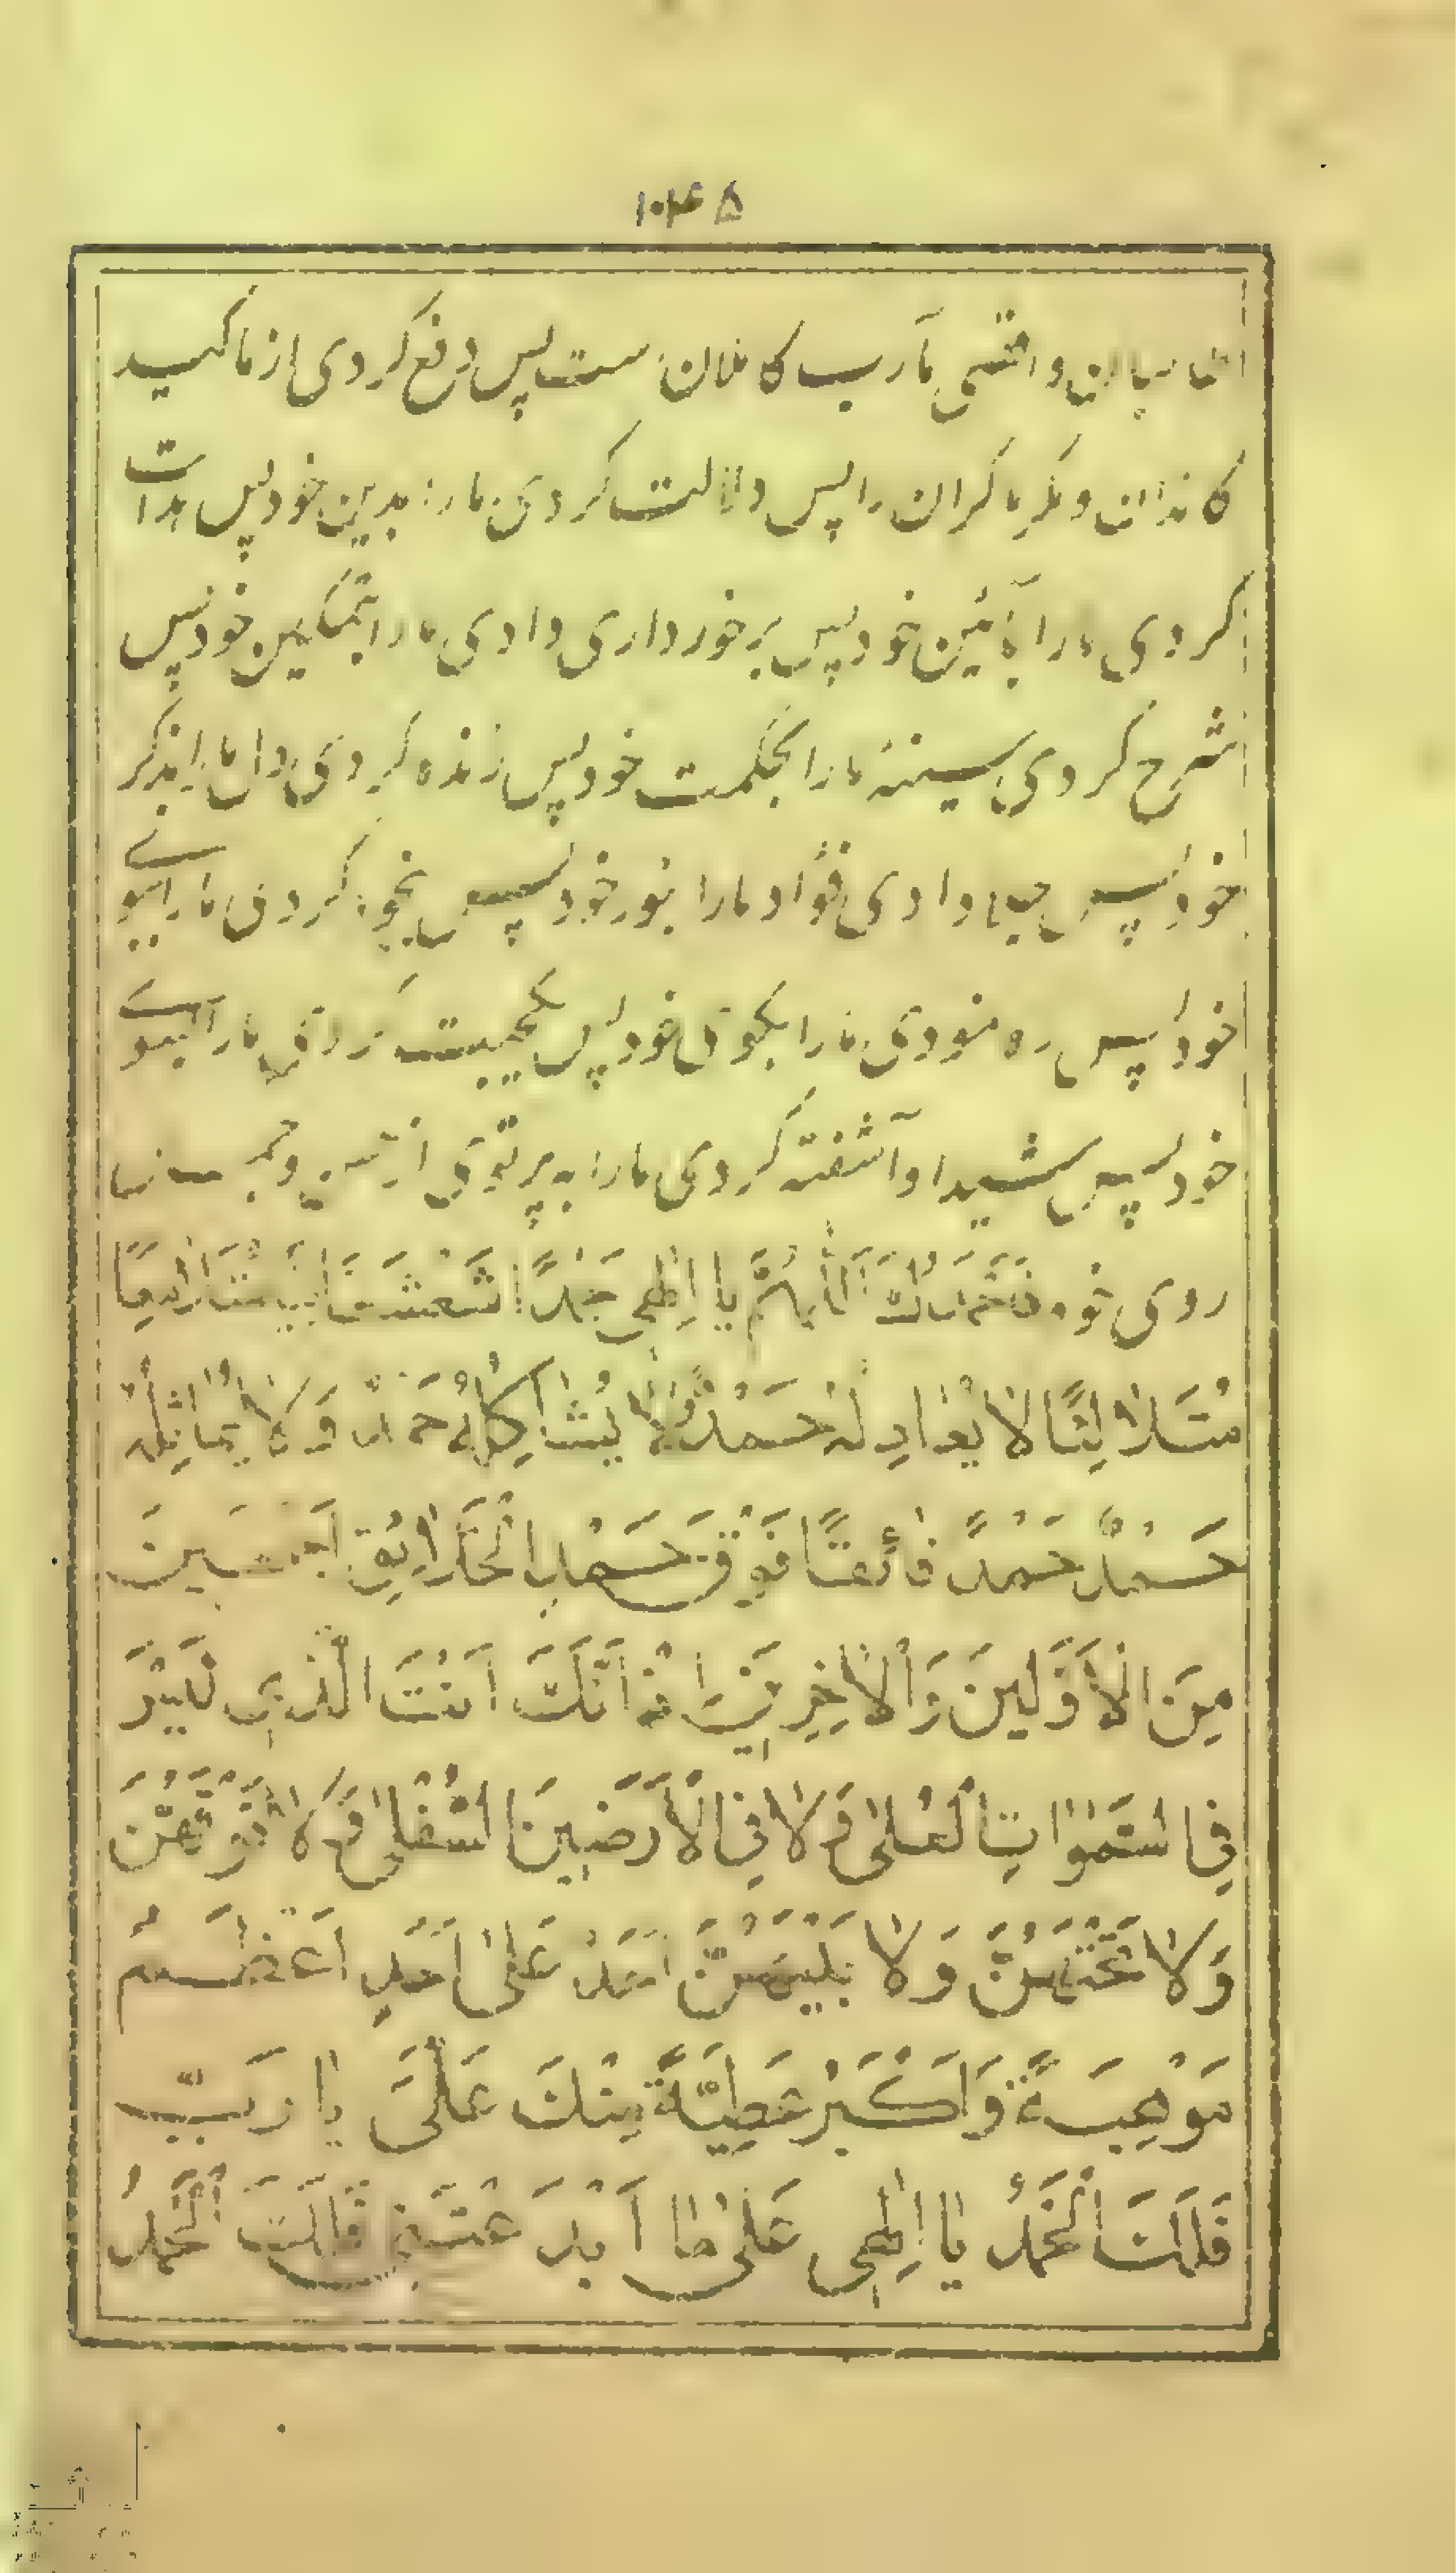 ۱۰۴۵
پس دفع کردی از ما کید
و مکر ماکران را پس دلالت کردی ما را بدین خود پس هدایت
کردی ما را بآئین خود پس برخورداری دادی ما را بتمکین خود پس
شرح کردی سینهٔ ما را بحکمت خود پس زنده کردی دل ما را بذکر
خود پس جلا دادی فؤاد ما را بنور خود پس نجوا کردی ما را بسوی
خود پس ره نمودی ما را بکوی خود پس ما را بسوی
خود پس شیدا و آشفته کردی ما را به پرتوی از
روی خود فَنَحْمَدُكَ اَللّٰهُمَّ یا اِلٰهی حَمْدًا شَعْشَعَانِیًّا
مُتَلَاْلِئًا لا یُعٰادِلُهُ حَمْدٌ وَلا یُشٰاکِلُهُ حَمْدٌ وَلا یُمٰاثِلُهُ
حَمْدٌ حَمْدًا فٰائِقًا فَوْقَ حَمْدِ الْخَلٰایِقِ اَجْمَعِینَ
مِنَ الْاَوَّلِینَ وَالْاٰخِرِینَ اِذْ اَنَّكَ اَنْتَ الَّذِی لَیْسَ
فِی السَّمٰوٰاتِ الْعُلیٰ وَلا فِی الْاَرَضِینَ السُّفْلیٰ وَلا فَوْقَهُنَّ
وَلا تَحْتَهُنَّ وَلا بَیْنَهُنَّ اَحَدٌ عَلیٰ اَحَدٍ اَعْظَمُ
مَوْهِبَةً وَاَکْبَرُ عَطِیَّةً مِنْكَ عَلَیَّ یٰا رَبِّ
فَلَكَ الْحَمْدُ یٰا اِلٰهِی عَلیٰ مٰا اَبْدَعْتَنِی فَلَكَ الْحَمْدُ